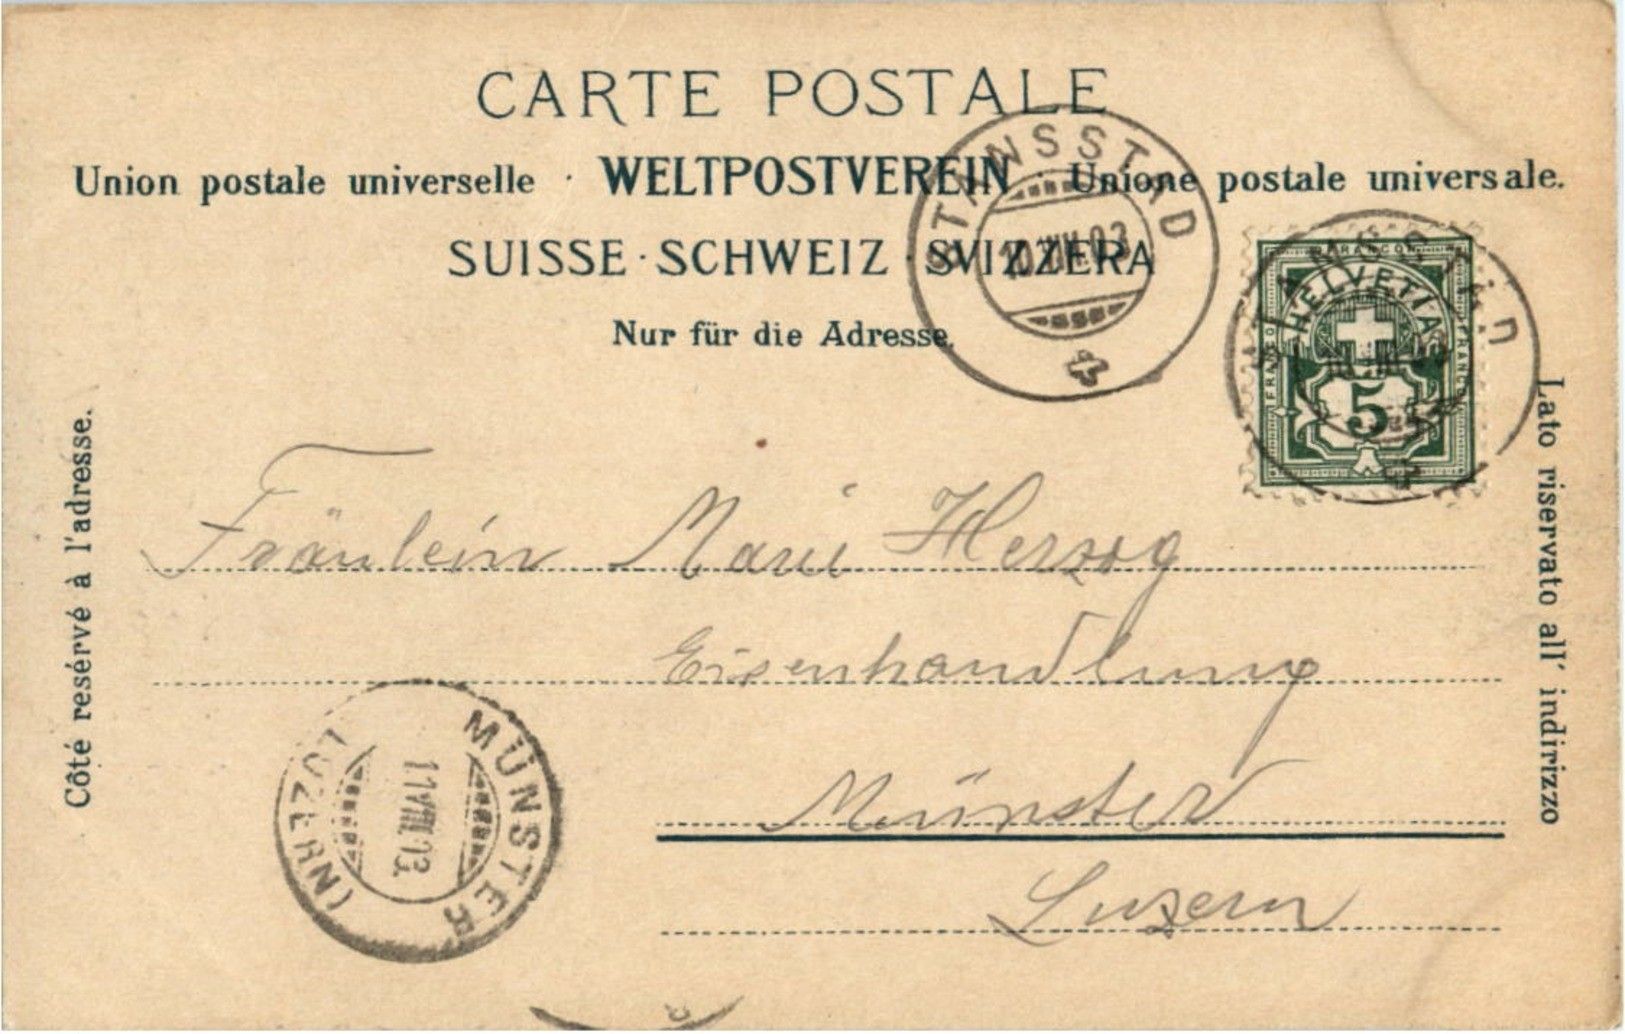 CARTE POSTALE
Union postale universelle · WELTPOSTVEREIN · Unione postale universale.
SUISSE · SCHWEIZ · SVIZZERA
Nur für die Adresse.
STANSSTAD
10.VIII.03
HELVETIA
FRANCO
5
Côté resérvé à l'adresse.
Lato riservato all' indirizzo
Fräulein Marie Herzog
Eisenhandlung
Münster
Luzern
MÜNSTER
(LUZERN)
11.VIII.03